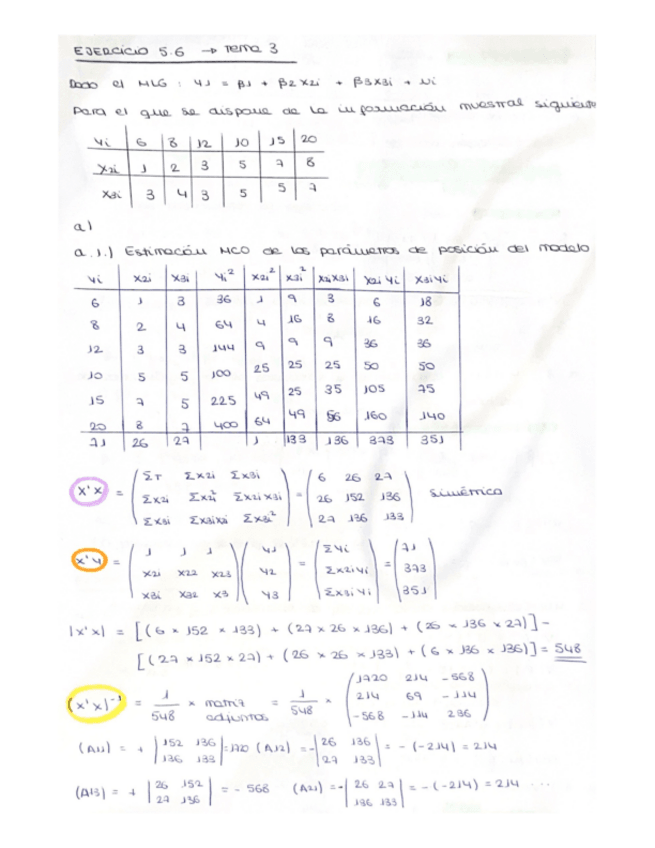 EJERCICIO 5.6 → Tema 3
Dado el MLG : Yi = β1 + β2 X2i + β3 X3i + Ui
Para el que se dispone de la información muestral siguiente
Yi 6 8 12 10 15 20
X2i 1 2 3 5 7 8
X3i 3 4 3 5 5 7
a)
a.1.) Estimación MCO de los parámetros de posición del modelo
Yi X2i X3i Yi² X2i² X3i² X2iX3i X2i Yi X3i Yi
6 1 3 36 1 9 3 6 18
8 2 4 64 4 16 8 16 32
12 3 3 144 9 9 9 36 36
10 5 5 100 25 25 25 50 50
15 7 5 225 49 25 35 105 75
20 8 7 400 64 49 56 160 140
71 26 27 1 133 136 373 351
X'X = ( ΣT ΣX2i ΣX3i ) = ( 6 26 27 )
ΣX2i ΣX2i² ΣX2iX3i 26 152 136 simétrica
ΣX3i ΣX3iX2i ΣX3i² 27 136 133
X'Y = ( 1 1 1 ) ( Y1 ) = ( ΣYi ) = ( 71 )
X2i X22 X23 Y2 ΣX2iYi 373
X3i X32 X3 Y3 ΣX3iYi 351
|X'X| = [(6 × 152 × 133) + (27 × 26 × 136) + (26 × 136 × 27)] -
[(27 × 152 × 27) + (26 × 26 × 133) + (6 × 136 × 136)] = 548
(X'X)⁻¹ = 1/548 × matriz adjuntos = 1/548 × ( 1720 214 -568 )
214 69 -114
-568 -114 236
(A11) = + |152 136| = 1720 (A12) = - |26 136| = - (-214) = 214
136 133 27 133
(A13) = + |26 152| = - 568 (A21) = - |26 27| = - (-214) = 214 ...
27 136 136 133